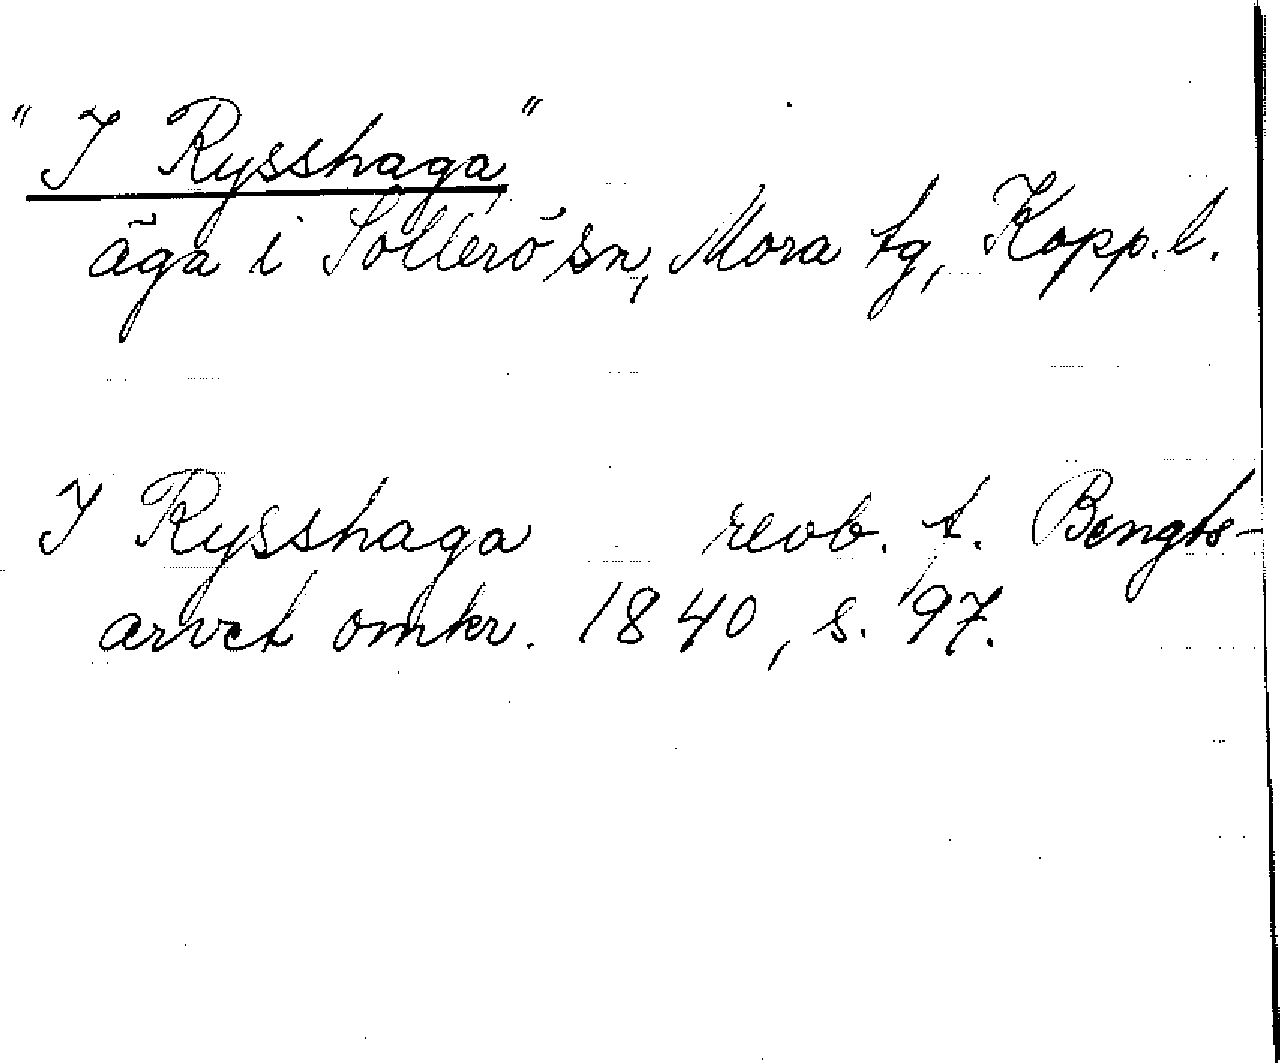 "I Rysshaga"
äga i Sollerö sn, Mora tg, Kopp. l.
I Rysshaga revb. t. Bengts-
arvet omkr. 1840, s. 97.